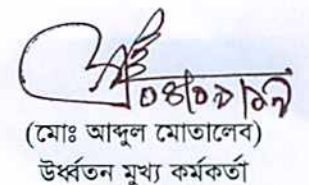 ০৪/০৯/১৭
(মোঃ আব্দুল মোতালেব)
উর্ধ্বতন মুখ্য কর্মকর্তা